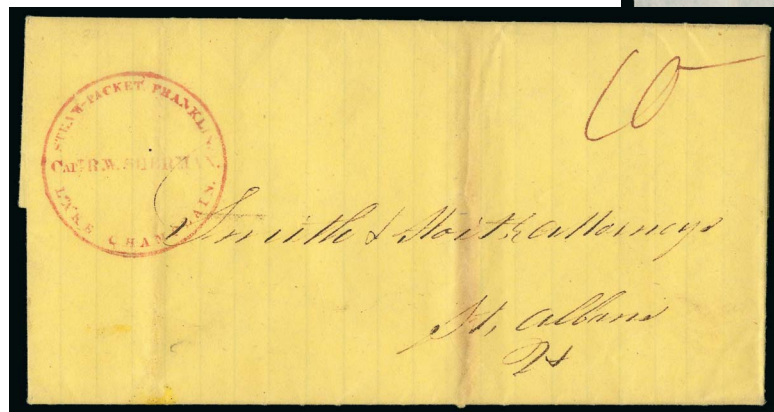 STEAM-PACKET FRANKLIN.
CAPT. R.W. SHERMAN
LAKE CHAMPLAIN.
10
Smith & Attorneys
St. Albans
Vt